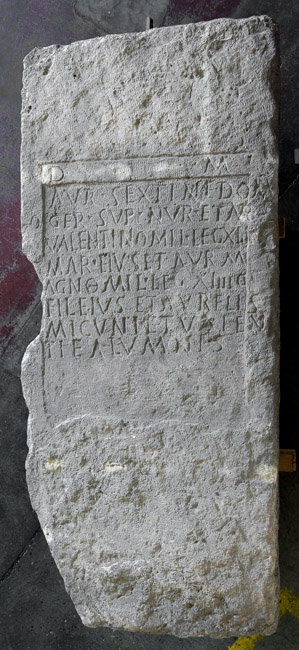 D M
MVR · SEXTINE DOM
GER · SVP · NVR · ET AVR
VALENTINO MIL · LEG XI
MAR · EIVS ET AVR M
AGNO MIL LEG · XIIII G
FIL EIVS ET SVRE
MICVNI ET VALEN
TI ALVMNIS